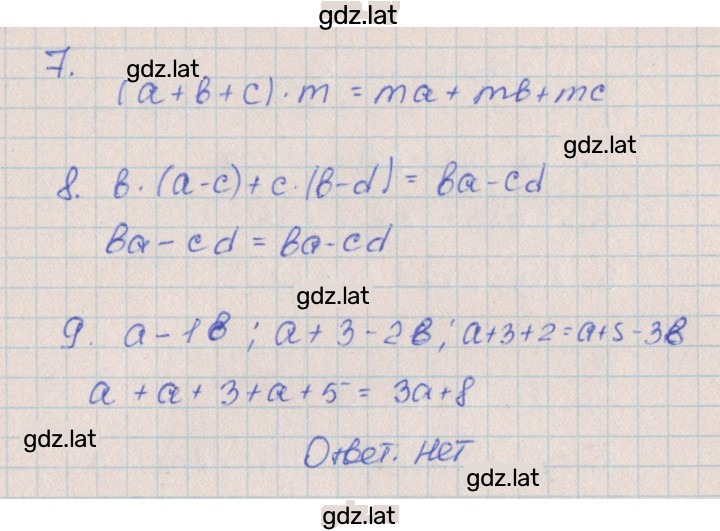 gdz.lat
7.
gdz.lat
(a+в+c)·m = ma+mв+mc
gdz.lat
8. в·(a-c)+c·(в-d) = вa-cd
вa-cd = вa-cd
gdz.lat
9. a-1в; a+3-2в; a+3+2=a+5-3в
a+a+3+a+5 = 3a+8
gdz.lat
Ответ. нет
gdz.lat
gdz.lat